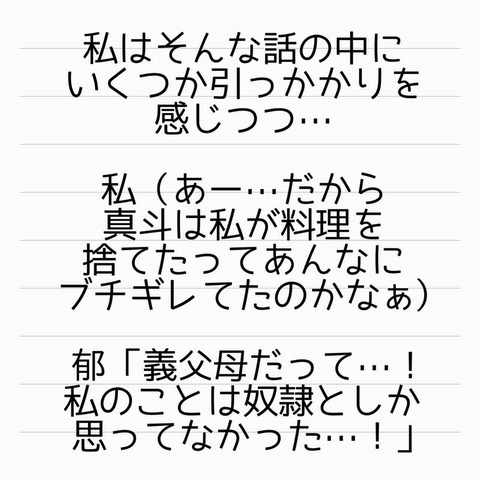 私はそんな話の中に
いくつか引っかかりを
感じつつ…
私（あー…だから
真斗は私が料理を
捨てたってあんなに
ブチギレてたのかなぁ）
郁「義父母だって…！
私のことは奴隷としか
思ってなかった…！」